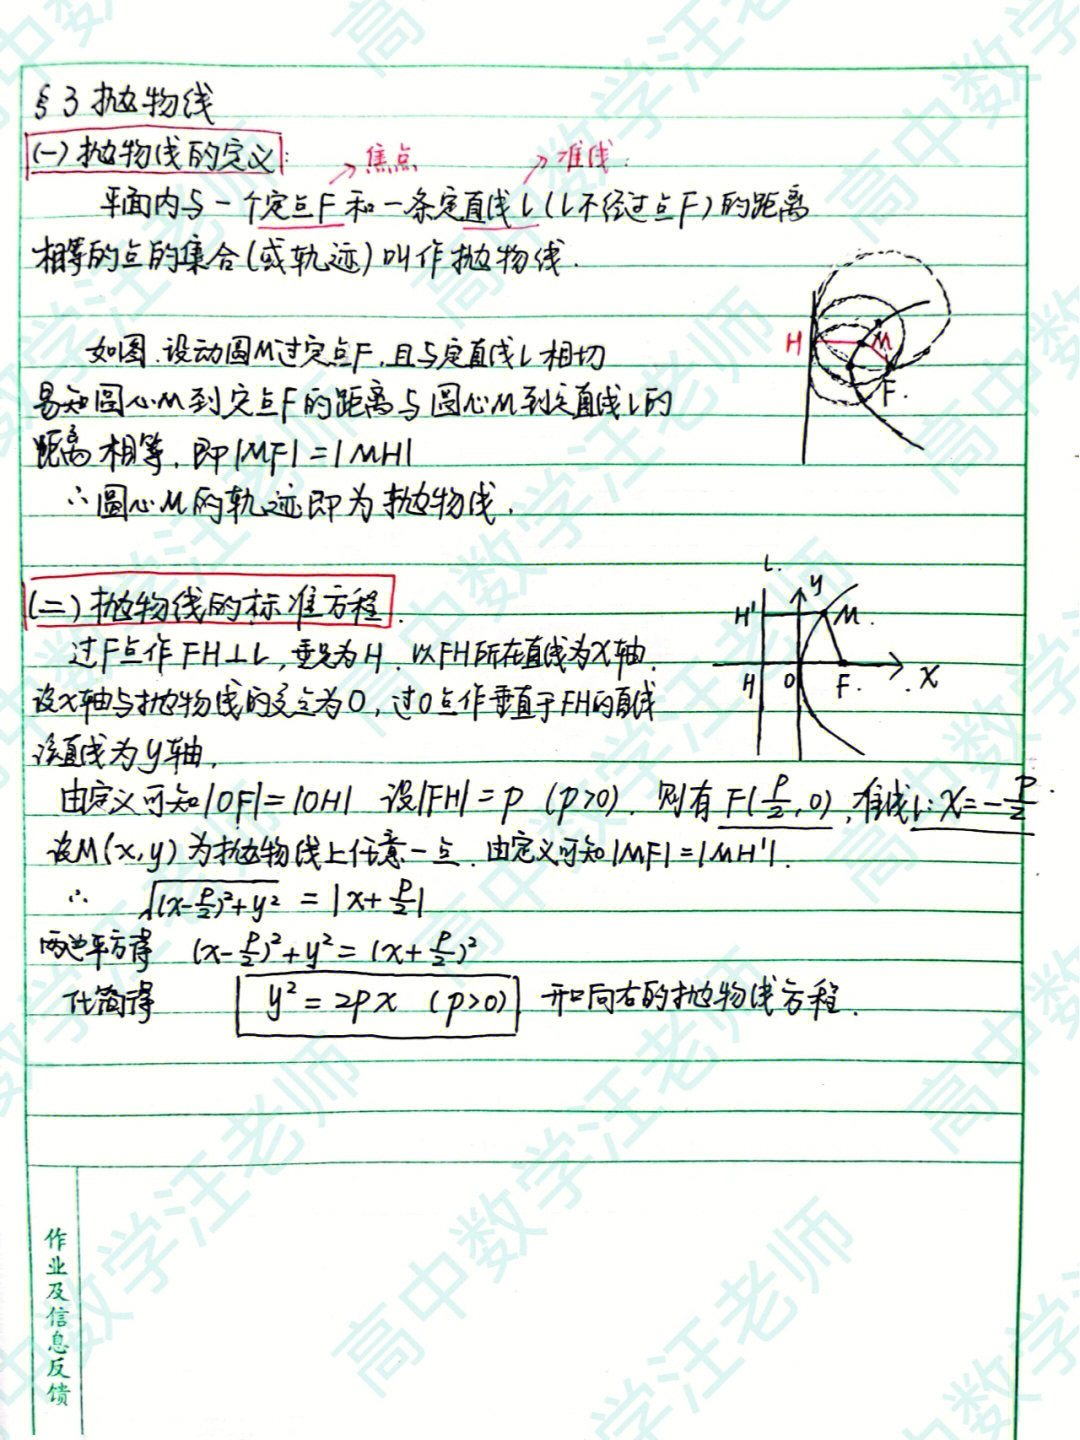 §3 抛物线
(一) 抛物线的定义:
焦点 准线:
平面内与一个定点F和一条定直线L(L不经过点F)的距离
相等的点的集合(或轨迹)叫作抛物线.
如图.设动圆M过定点F,且与定直线L相切
易知圆心M到定点F的距离与圆心M到定直线L的
距离相等,即|MF|=|MH|
∴圆心M的轨迹即为抛物线.
H M F.
(二)抛物线的标准方程.
过F点作FH⊥L,垂足为H.以FH所在直线为X轴.
设X轴与抛物线的交点为O,过O点作垂直于FH的直线
该直线为y轴.
L. y H' M. H O F. X
由定义可知|OF|=|OH| 设|FH|=p (p>0). 则有F(p/2,0),准线L:x=-p/2.
设M(x,y)为抛物线上任意一点.由定义可知|MF|=|MH'|.
∴ √((x-p/2)²+y²) = |x+p/2|
两边平方得 (x-p/2)²+y²=(x+p/2)²
化简得 y²=2px (p>0) 开口向右的抛物线方程.
作业及信息反馈
高中数学汪老师